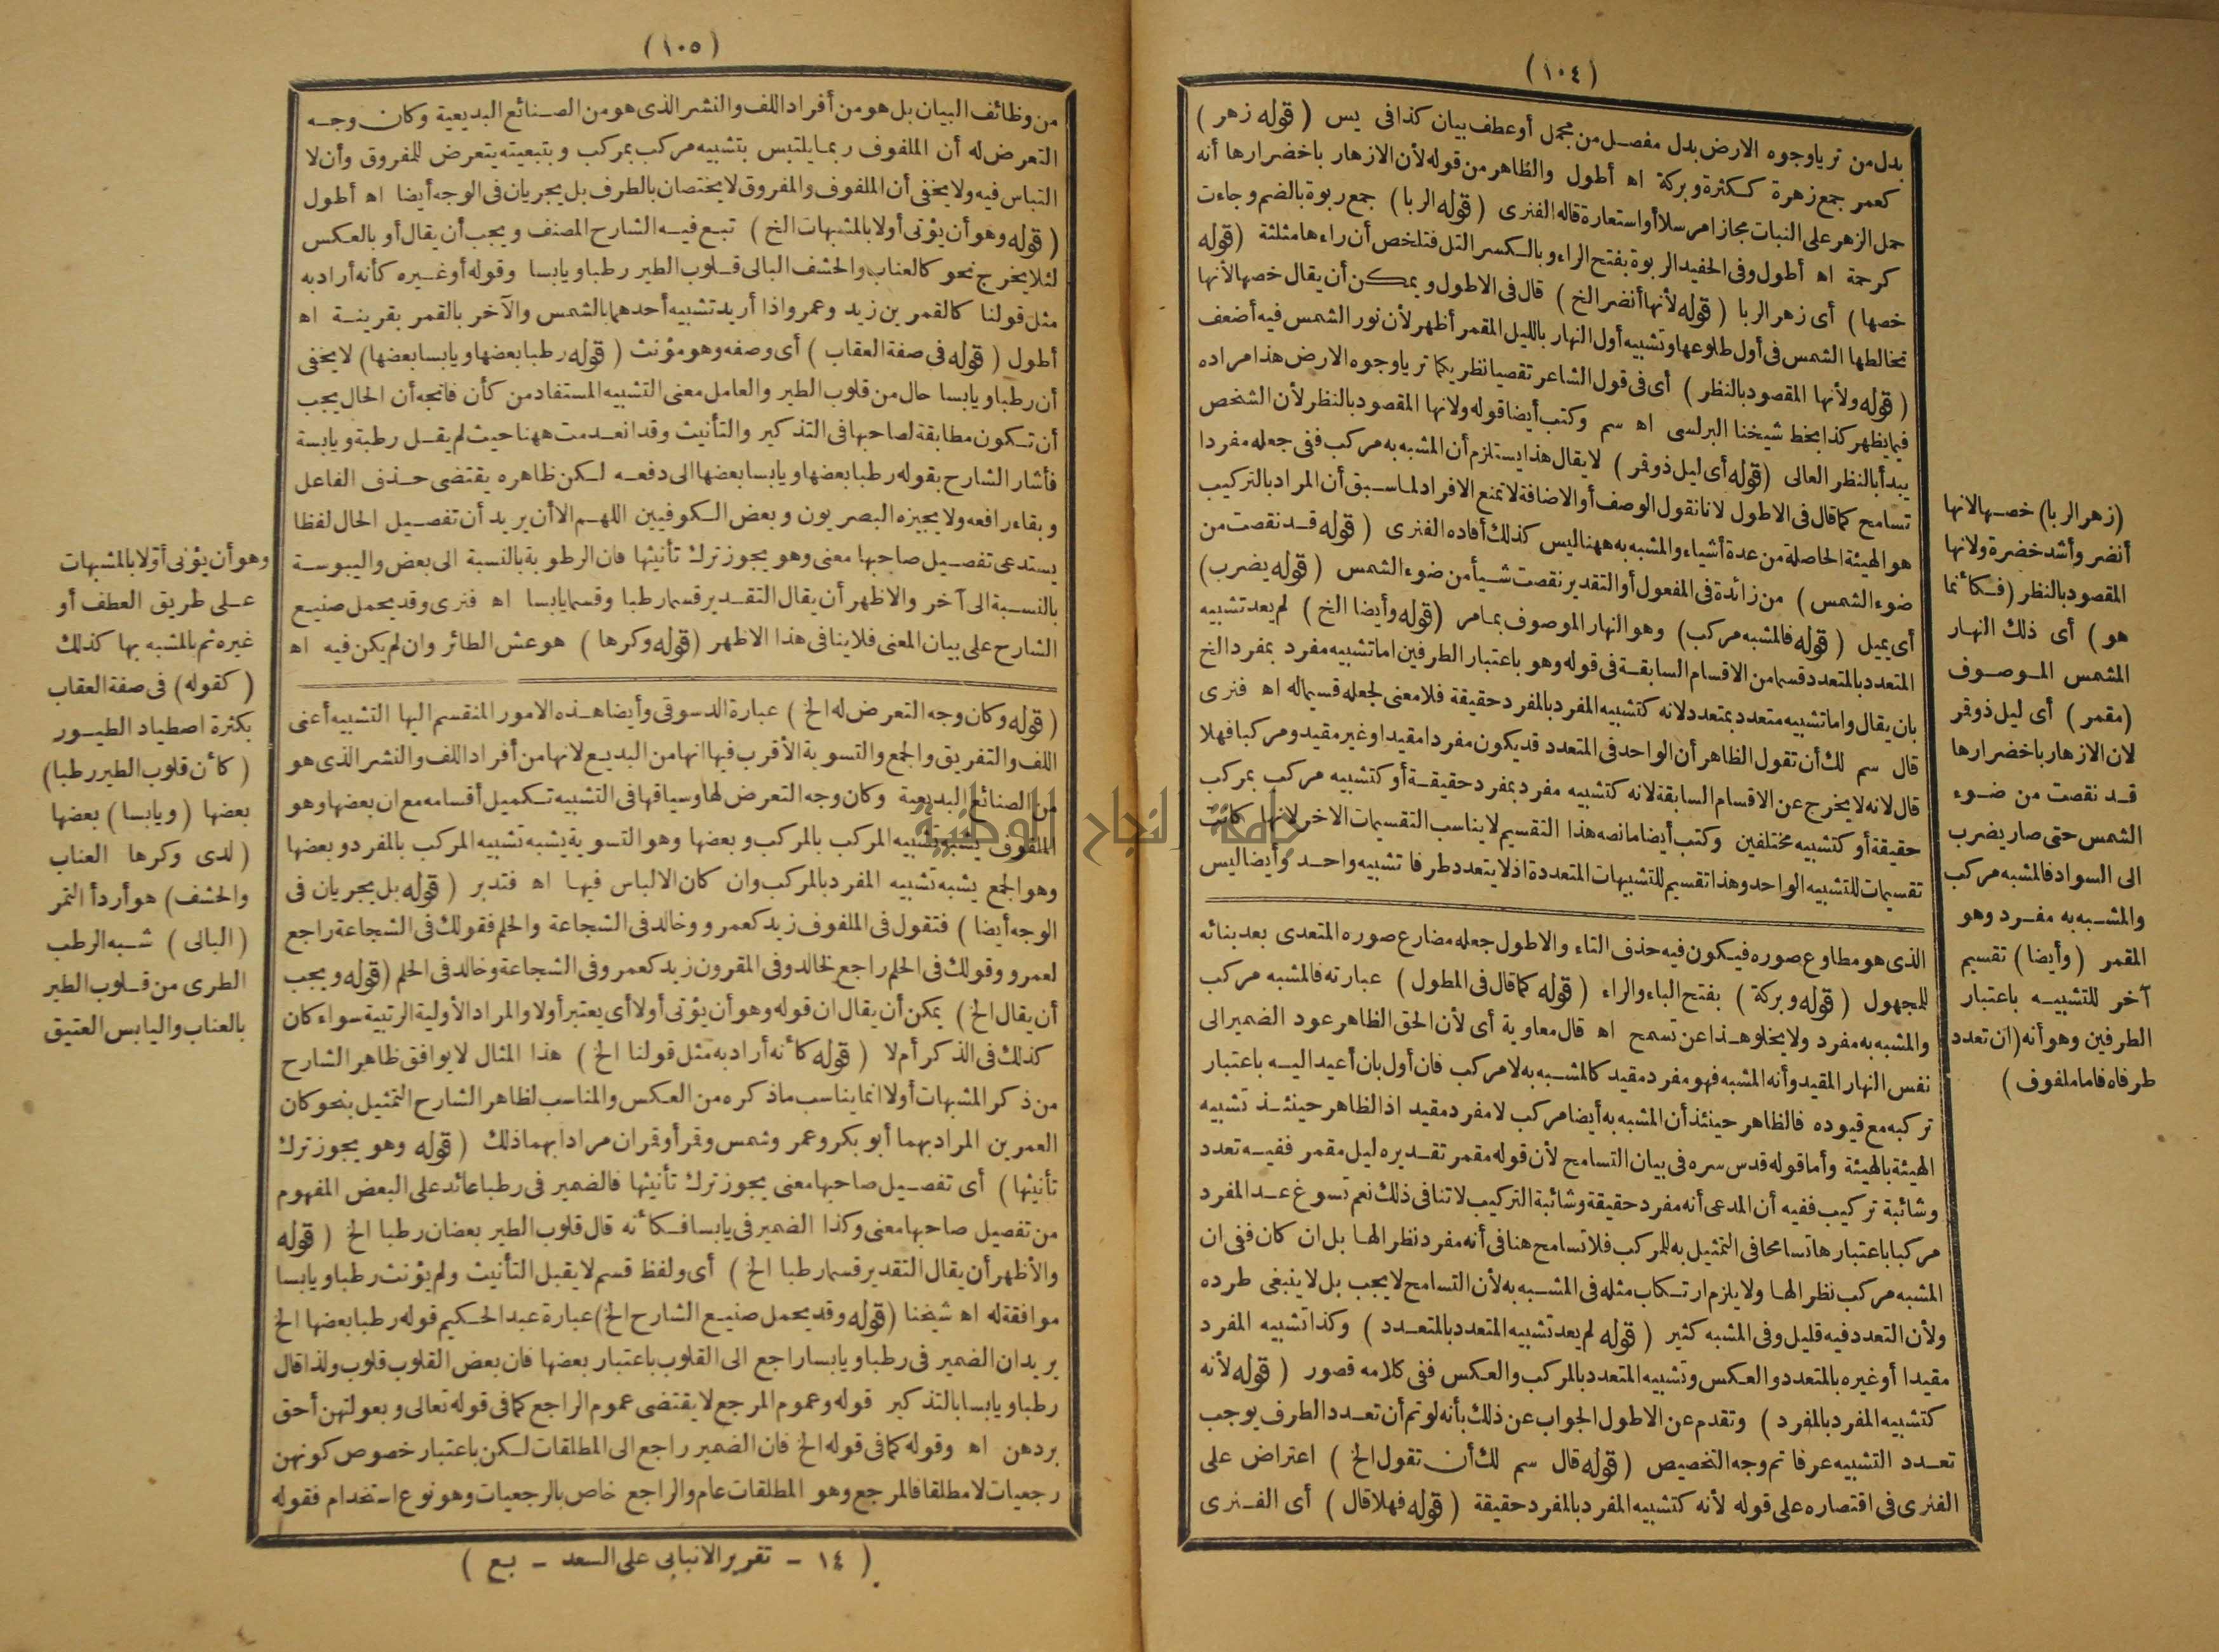 (١٠٤)
بدل من تر ياوجوه الارض بدل مفصل من مجمل أو عطف بيان كذا فى يس (قوله زهر)
كعمر جمع زهرة ككثرة وبركة اه أطول والظاهر من قوله لأن الازهار باخضرارها أنه
حمل الزهر على النبات مجازا مرسلا أو استعارة قاله الفنرى (قوله الربا) جمع ربوة بالضم وجاءت
كرحمة اه أطول وفى الحفيد الربوة بفتح الراء وبالكسر التل فتلخص أن راءها مثلثة (قوله
خصها) أى زهر الربا (قوله لأنها أنضر الخ) قال فى الاطول ويمكن أن يقال خصها لأنها
تخالطها الشمس فى أول طلوعها وتشبيه أول النهار بالليل المقمر أظهر لأن نور الشمس فيه أضعف
(قوله ولأنها المقصود بالنظر) أى فى قول الشاعر تقصيا نظريكما تريا وجوه الارض هذا مراده
فيما يظهر كذا بخط شيخنا البرلسى اه سم وكتب أيضا قوله ولانها المقصود بالنظر لأن الشخص
يبدأ بالنظر العالى (قوله أى ليل ذو قمر) لا يقال هذا يستلزم أن المشبه به مركب ففى جعله مفردا
تسامح كما قال فى الاطول لانا نقول الوصف أو الاضافة لا تمنع الافراد لما سبق أن المراد بالتركيب
هو الهيئة الحاصلة من عدة أشياء والمشبه به ههنا ليس كذلك أفاده الفنرى (قوله قد نقصت من
ضوء الشمس) من زائدة فى المفعول أو التقدير نقصت شيأ من ضوء الشمس (قوله يضرب)
أى يميل (قوله فالمشبه مركب) وهو النهار الموصوف بمامر (قوله وأيضا الخ) لم يعد تشبيه
المتعدد بالمتعدد قسما من الاقسام السابقة فى قوله وهو باعتبار الطرفين اما تشبيه مفرد بمفرد الخ
بان يقال واما تشبيه متعدد بمتعدد لانه كتشبيه المفرد بالمفرد حقيقة فلا معنى لجعله قسيما له اه فنرى
قال سم لك أن تقول الظاهر أن الواحد فى المتعدد قد يكون مفردا مقيدا وغير مقيد ومركبا فهلا
قال لانه لا يخرج عن الاقسام السابقة لانه كتشبيه مفرد بمفرد حقيقة أو كتشبيه مركب بمركب
حقيقة أو كتشبيه مختلفين وكتب أيضا ما نصه هذا التقسيم لا يناسب التقسيمات الاخر لانها كانت
تقسيمات للتشبيه الواحد وهذا تقسيم للتشبيهات المتعددة اذ لا يتعدد طرفا تشبيه واحد وأيضا ليس
الذى هو مطاوع صوره فيكون فيه حذف التاء والاطول جعله مضارع صوره المتعدى بعد بنائه
للمجهول (قوله وبركة) بفتح الباء والراء (قوله كما قال فى المطول) عبارته فالمشبه مركب
والمشبه به مفرد ولا يخلو هذا عن تسمح اه قال معاوية أى لأن الحق الظاهر عود الضمير الى
نفس النهار المقيد وأنه المشبه فهو مفرد مقيد كالمشبه به لا مركب فان أول بان أعيد اليه باعتبار
تركبه مع قيوده فالظاهر حينئذ أن المشبه به أيضا مركب لا مفرد مقيد اذ الظاهر حينئذ تشبيه
الهيئة بالهيئة وأما قوله قدس سره فى بيان التسامح لأن قوله مقمر تقديره ليل مقمر ففيه تعدد
وشائبة تركيب ففيه أن المدعى أنه مفرد حقيقة وشائبة التركيب لا تنافى ذلك نعم تسوغ عد المفرد
مركبا باعتبارها تسامحا فى التمثيل به للمركب فلا تسامح هنا فى أنه مفرد نظر الها بل ان كان ففى ان
المشبه مركب نظر الها ولا يلزم ارتكاب مثله فى المشبه به لأن التسامح لا يجب بل لا ينبغى طرده
ولأن التعدد فيه قليل وفى المشبه كثير (قوله لم يعد تشبيه المتعدد بالمتعدد) وكذا تشبيه المفرد
مقيدا أو غيره بالمتعدد والعكس وتشبيه المتعدد بالمركب والعكس ففى كلامه قصور (قوله لأنه
كتشبيه المفرد بالمفرد) وتقدم عن الاطول الجواب عن ذلك بأنه لو تم أن تعدد الطرف يوجب
تعدد التشبيه عرفا تم وجه التخصيص (قوله قال سم لك أن تقول الخ) اعتراض على
الفنرى فى اقتصاره على قوله لأنه كتشبيه المفرد بالمفرد حقيقة (قوله فهلا قال) أى الفنرى
(زهر الربا) خصها لانها
أنضر وأشد خضرة ولانها
المقصود بالنظر (فكأنما
هو) أى ذلك النهار
المشمس الموصوف
(مقمر) أى ليل ذو قمر
لان الازهار باخضرارها
قد نقصت من ضوء
الشمس حتى صار يضرب
الى السواد فالمشبه مركب
والمشبه به مفرد وهو
المقمر (وأيضا) تقسيم
آخر للتشبيه باعتبار
الطرفين وهو أنه (ان تعدد
طرفاه فاما ملفوف)
(١٠٥)
من وظائف البيان بل هو من أفراد اللف والنشر الذى هو من الصنائع البديعية وكان وجه
التعرض له أن الملفوف ربما يلتبس بتشبيه مركب بمركب وبتبعيته يتعرض للمفروق وأن لا
التباس فيه ولا يخفى أن الملفوف والمفروق لا يختصان بالطرف بل يجريان فى الوجه أيضا اه أطول
(قوله وهو أن يؤتى أولا بالمشبهات الخ) تبع فيه الشارح المصنف ويجب أن يقال أو بالعكس
لئلا يخرج نحو كالعناب والحشف البالى قلوب الطير رطبا ويابسا وقوله أو غيره كأنه أراد به
مثل قولنا كالقمرين زيد وعمرو اذا أريد تشبيه أحدهما بالشمس والآخر بالقمر بقرينة اه
أطول (قوله فى صفة العقاب) أى وصفه وهو مؤنث (قوله رطبا بعضها ويابسا بعضها) لا يخفى
أن رطبا ويابسا حال من قلوب الطير والعامل معنى التشبيه المستفاد من كأن فاتجه أن الحال يجب
أن تكون مطابقة لصاحبها فى التذكير والتأنيث وقد انعدمت ههنا حيث لم يقل رطبة ويابسة
فأشار الشارح بقوله رطبا بعضها ويابسا بعضها الى دفعه لكن ظاهره يقتضى حذف الفاعل
وبقاء رافعه ولا يجيزه البصريون وبعض الكوفيين اللهم الا أن يريد أن تفصيل الحال لفظا
يستدعى تفصيل صاحبها معنى وهو يجوز ترك تأنيثها فان الرطوبة بالنسبة الى بعض واليبوسة
بالنسبة الى آخر والاظهر أن يقال التقدير قسما رطبا وقسما يابسا اه فنرى وقد يحمل صنيع
الشارح على بيان المعنى فلا ينافى هذا الاظهر (قوله وكرها) هو عش الطائر وان لم يكن فيه اه
(قوله وكان وجه التعرض له الخ) عبارة الدسوقى وأيضا هذه الامور المنقسم اليها التشبيه أعنى
اللف والتفريق والجمع والتسوية الأقرب فيها انها من البديع لانها من أفراد اللف والنشر الذى هو
من الصنائع البديعية وكان وجه التعرض لها وسياقها فى التشبيه تكميل أقسامه مع ان بعضها وهو
الملفوف يشبه تشبيه المركب بالمركب وبعضها وهو التسوية يشبه تشبيه المركب بالمفرد وبعضها
وهو الجمع يشبه تشبيه المفرد بالمركب وان كان الالباس فيها اه فتدبر (قوله بل يجريان فى
الوجه أيضا) فتقول فى الملفوف زيد كعمرو وخالد فى الشجاعة والحلم فقولك فى الشجاعة راجع
لعمرو وقولك فى الحلم راجع لخالد وفى المقرون زيد كعمرو فى الشجاعة وخالد فى الحلم (قوله ويجب
أن يقال الخ) يمكن أن يقال ان قوله وهو أن يؤتى أولا أى يعتبر أولا والمراد الأولية الرتبية سواء كان
كذلك فى الذكر أم لا (قوله كأنه أراد به مثل قولنا الخ) هذا المثال لا يوافق ظاهر الشارح
من ذكر المشبهات أولا انما يناسب ما ذكره من العكس والمناسب لظاهر الشارح التمثيل بنحو كان
العمرين المراد بهما أبو بكر وعمر وشمس وقمر أو قمران مرادا بهما ذلك (قوله وهو يجوز ترك
تأنيثها) أى تفصيل صاحبها معنى يجوز ترك تأنيثها فالضمير فى رطبا عائد على البعض المفهوم
من تفصيل صاحبها معنى وكذا الضمير فى يابسا فكأنه قال قلوب الطير بعضان رطبا الخ (قوله
والأظهر أن يقال التقدير قسما رطبا الخ) أى ولفظ قسم لا يقبل التأنيث ولم يؤنث رطبا ويابسا
موافقة له اه شيخنا (قوله وقد يحمل صنيع الشارح الخ) عبارة عبد الحكيم قوله رطبا بعضها الخ
يريد ان الضمير فى رطبا ويابسا راجع الى القلوب باعتبار بعضها فان بعض القلوب قلوب ولذا قال
رطبا ويابسا بالتذكير قوله وعموم المرجع لا يقتضى عموم الراجع كما فى قوله تعالى وبعولتهن أحق
بردهن اه وقوله كما فى قوله الخ فان الضمير راجع الى المطلقات لكن باعتبار خصوص كونهن
رجعيات لا مطلقا فالمرجع وهو المطلقات عام والراجع خاص بالرجعيات وهو نوع استخدام فقوله
وهو أن يؤتى أولا بالمشبهات
على طريق العطف أو
غيره ثم بالمشبه بها كذلك
(كقوله) فى صفة العقاب
بكثرة اصطياد الطيور
(كأن قلوب الطير رطبا)
بعضها (ويابسا) بعضها
(لدى وكرها العناب
والحشف) هو أردأ التمر
(البالى) شبه الرطب
الطرى من قلوب الطير
بالعناب واليابس العتيق
(١٤ - تقرير الانبابى على السعد - بع)
جامعة النجاح الوطنية